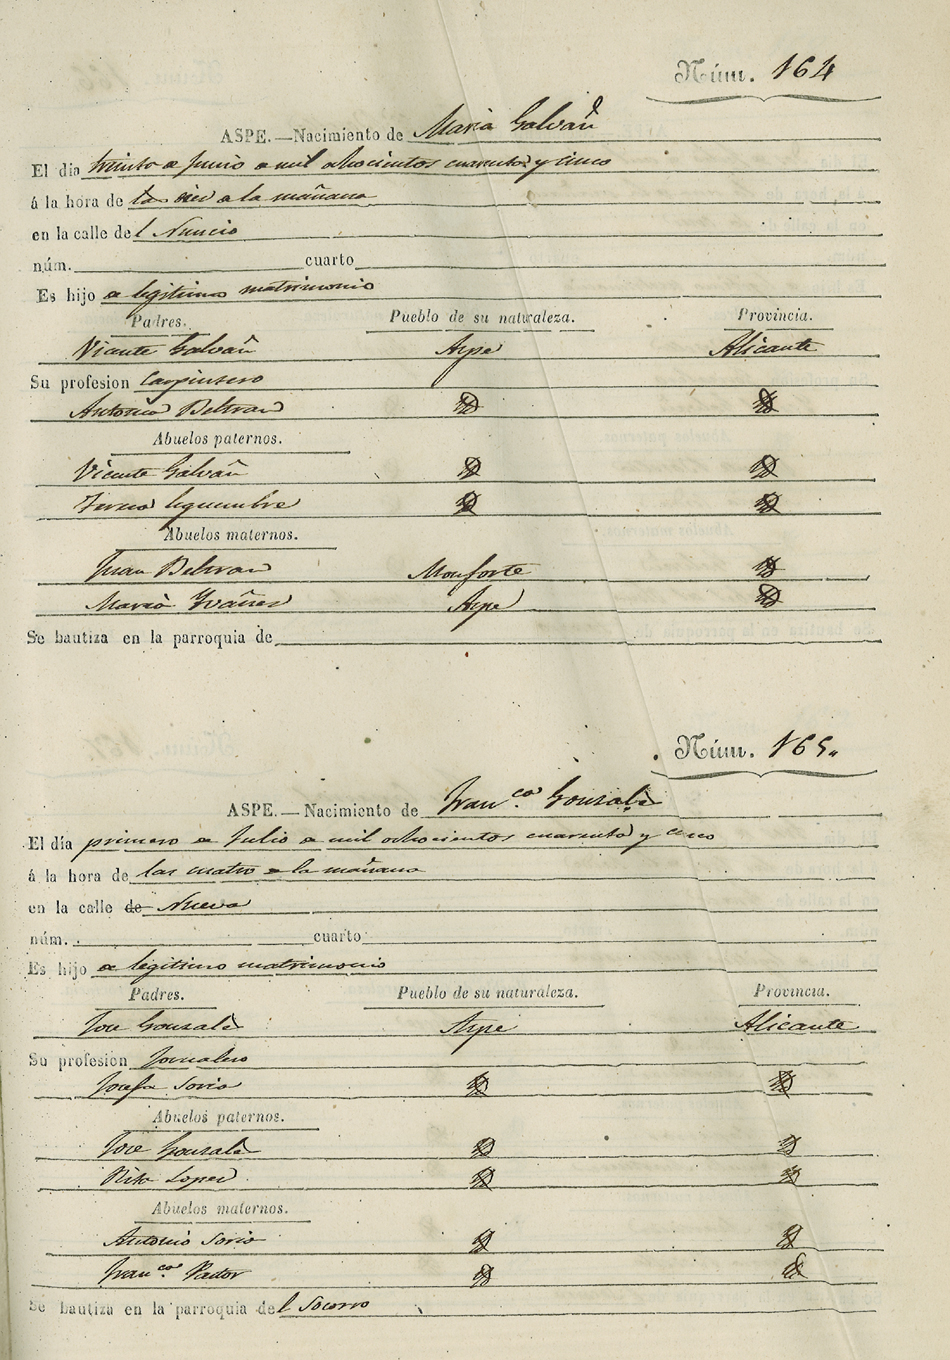 Núm. 164
ASPE.—Nacimiento de Maria Galvañ
El día treinta de Junio de mil ochocientos cuarenta y cinco
á la hora de las diez de la mañana
en la calle del Nuncio
núm. cuarto
Es hijo de legitimo matrimonio
Padres. Pueblo de su naturaleza. Provincia.
Vicente Galvañ Aspe Alicante
Su profesion Carpintero
Antonia Beltran
Abuelos paternos.
Vicente Galvañ
Teresa
Abuelos maternos.
Juan Beltran Monforte
Maria Yvañez Aspe
Se bautiza en la parroquia de
Núm. 165.
ASPE.—Nacimiento de Franco. Gonzalez
El día primero de Julio de mil ochocientos cuarenta y cinco
á la hora de las cuatro de la mañana
en la calle de Nueva
núm. cuarto
Es hijo de legitimo matrimonio
Padres. Pueblo de su naturaleza. Provincia.
Jose Gonzalez Aspe Alicante
Su profesion Jornalero
Josefa Soria
Abuelos paternos.
Jose Gonzalez
Rita Lopez
Abuelos maternos.
Antonio Soria
Franca. Pastor
Se bautiza en la parroquia del Socorro